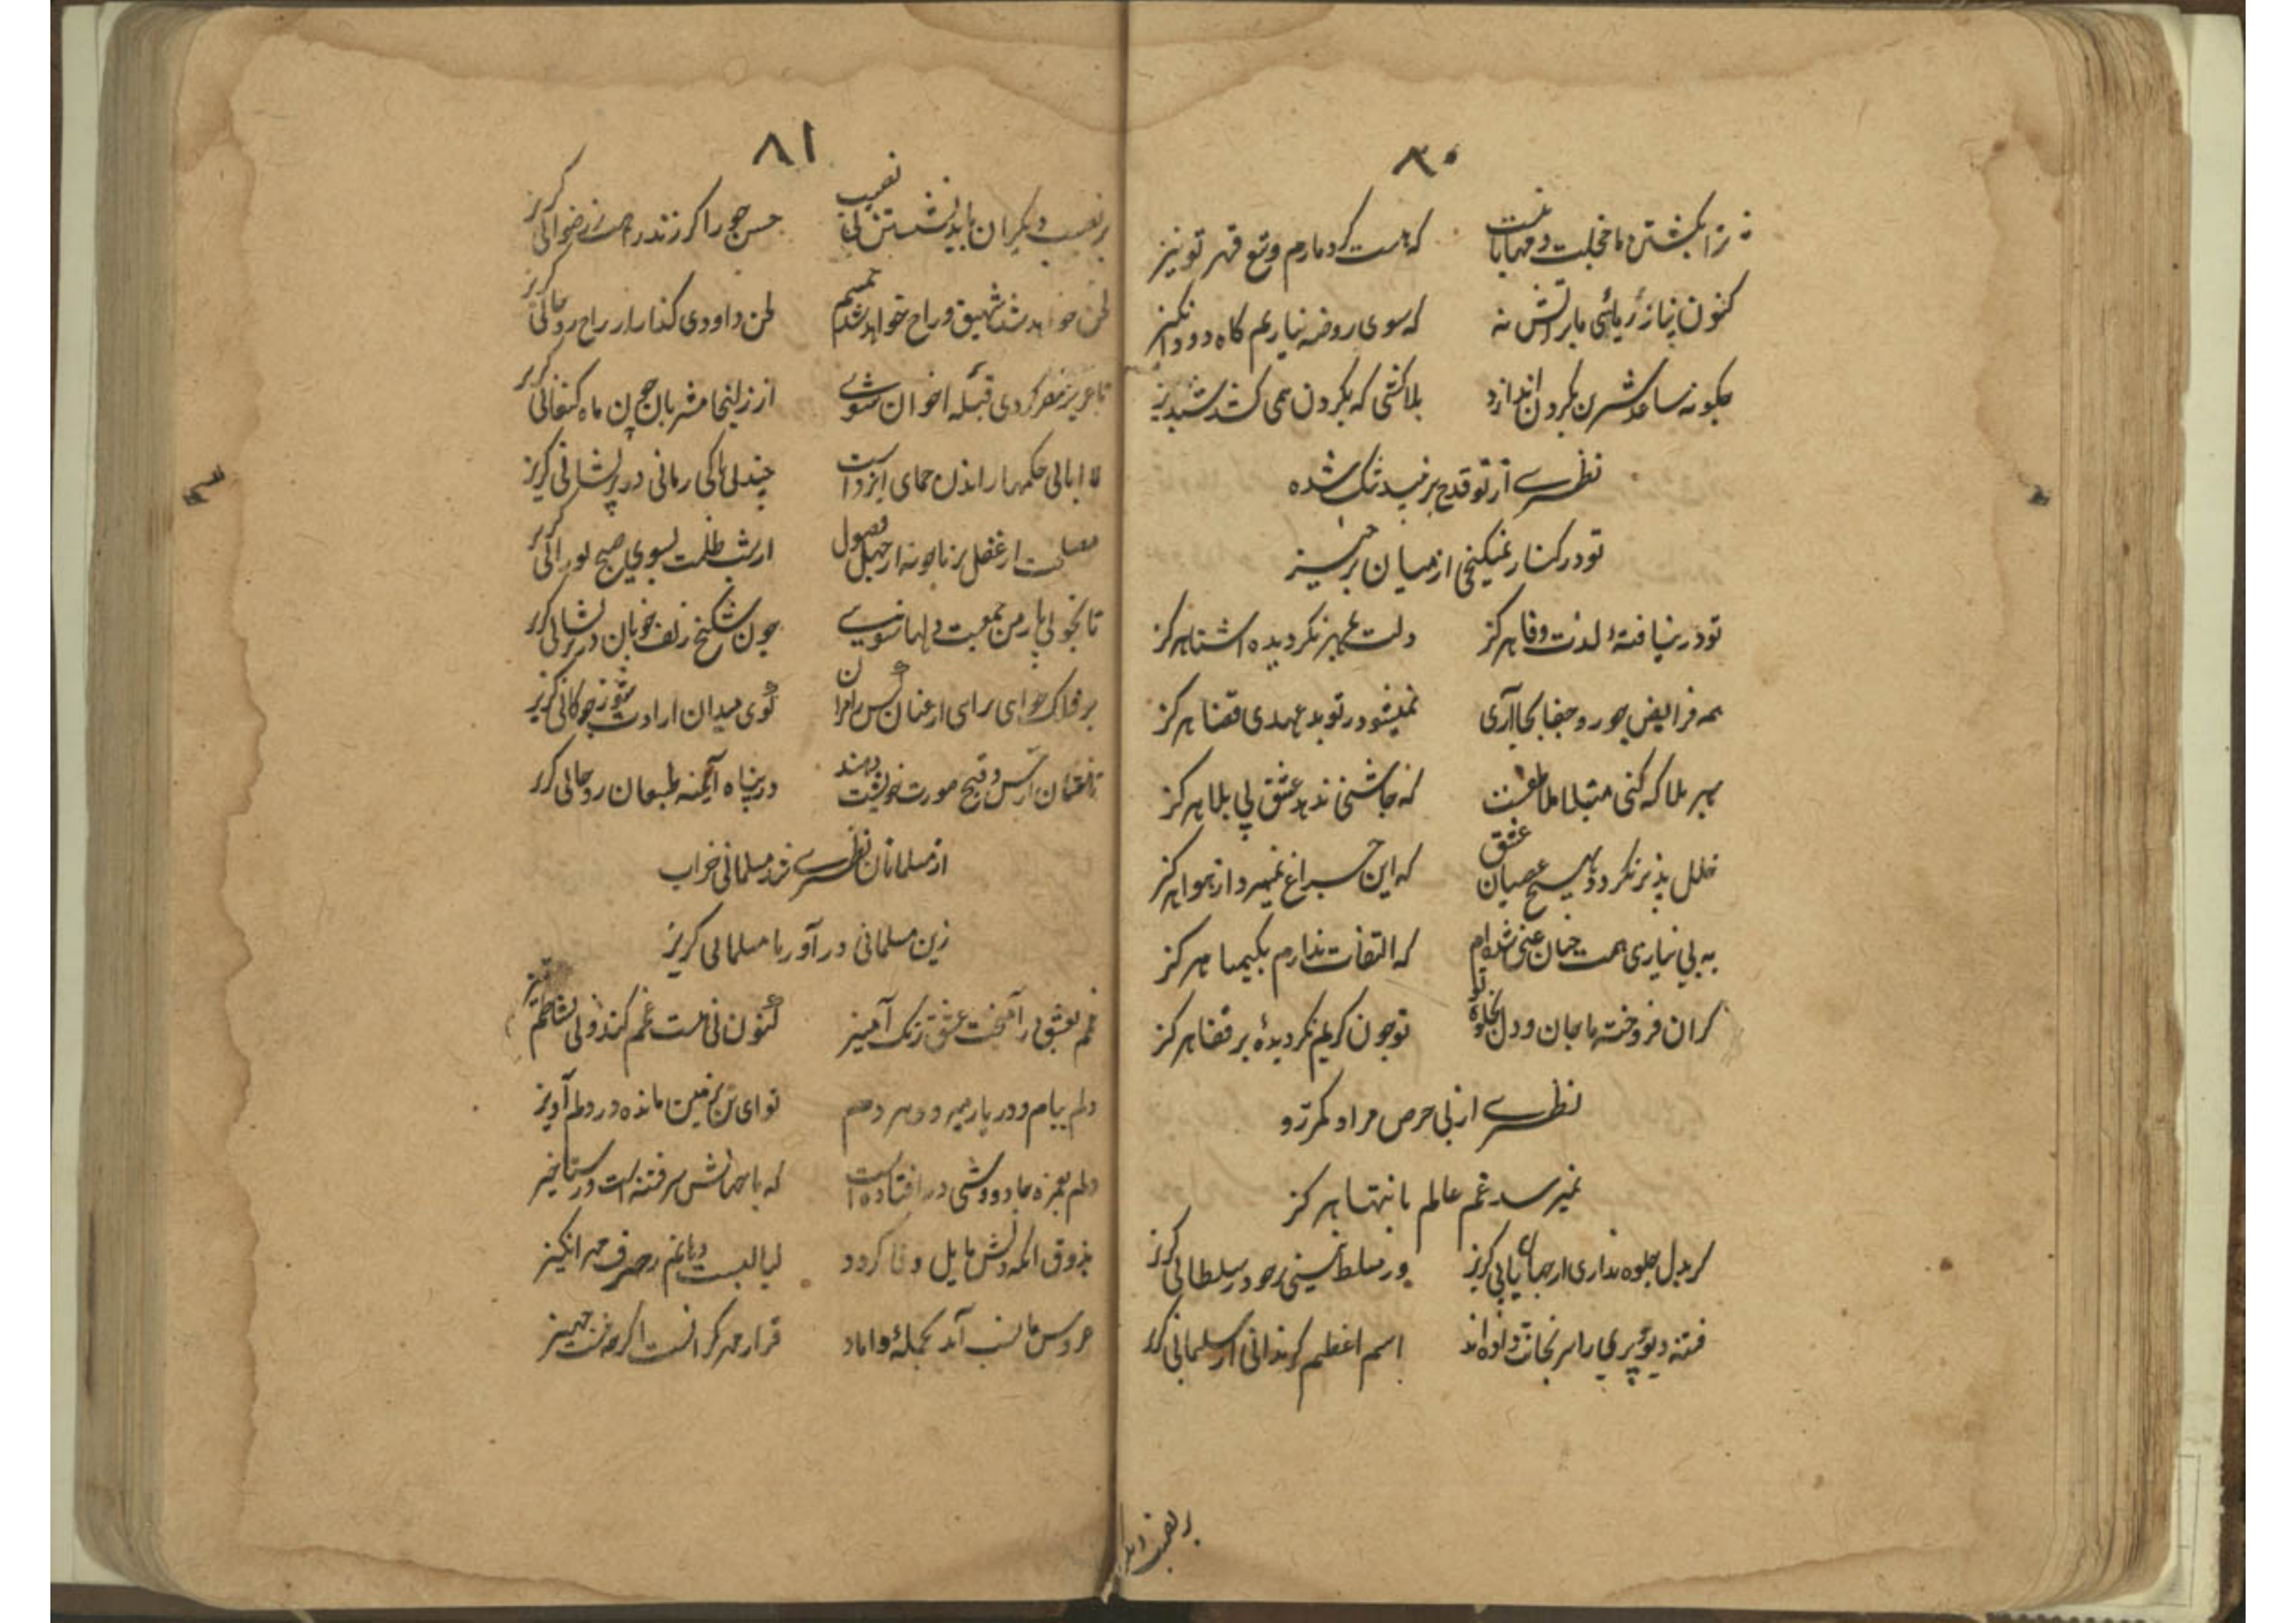 ۸۰
نه زانکشتن ما خجلت و مهابا نیست که هست کرد مارم وقع قهر تو نیز
کنون نیاز ریائی ما بر آتش نه که سوی روضه نیاریم کاه دود انکیز
چکونه ساعد شیرین بکردن اندازد بلاکشی که بکردن می کشد شبدیز
نظیری از تو قدح بر نبید تنک شده
تو در کنار نمیکنجی از میان برخیز
تو در نیافتهٔ لذت وفا هرکز دلت بمهر نکردیده اشنا هرکز
همه فرایض جور و جفا بجا آری نمیشود ز تو بدعهدی قضا هرکز
بهر بلا که کنی مبتلا ملاطفتست که چاشنی ندهد عشق بی بلا هرکز
خلل پذیر نکردد بهیچ عصیان عشق که این چراغ نمیرد از هوا هرکز
به بی نیازی همت چنان غنی شده‌ام که التفات ندارم بکیمیا هرکز
کران فروخته ما جان و دل بجلوهٔ تو تو چون کریم نکردیدهٔ بر قضا هرکز
نظیری از پی حرص مراد کمتر رو
نمیرسد غم عالم بانتها هرکز
کر بدل جلوه نداری از جهانبانی کریز ور مسلط نیستی بر خود ز سلطانی کریز
فتنه دیو و پری را سر بجانت داده‌اند اسم اعظم کر ندانی از سلیمانی کریز
بر نصیب دیکر
۸۱
بر نصیب دیکران باید نشستن بی نصیب حسن حورا کر زند راهت ز رضوانی کریز
لحن خواهد شد شهیق و راح خواهد شد حمیم لحن داودی کذار از راح روحانی کریز
تا عزیز مصر کردی قبلهٔ اخوان شوی از زلیخا مشربان چون ماه کنعانی کریز
لا ابالی حکمها راندن حمای ایزد است چند بی باکی زمانی در پریشانی کریز
مصلحت از عقل برنا جو نه از جهل فضول از شب ظلمت بسوی صبح نورانی کریز
تا بخوبی پارمن جمعیت دلها شوی چون شکنج زلف خوبان در پریشانی کریز
بر فلاک خوای برای از عنان نفس را کوی میدان ارادت شو ز چوکانی کریز
تا نشان از حسن و قبح صورت خویشت دهند در پناه آینه طبعان روحانی کریز
از مسلمانان نظیری شد مسلمانی خراب
زین مسلمانی در آور با مسلمانی کریز
غم بعشق در آمیخت عشق رنک آمیز کنون نی است غم کند و نی نشاطم تیز
دلم ببام و در یار میرود هر دم تو ای تن بزمین مانده در دلم آویز
دلم بغمزه جادووشی در افتاده است که با جهانش سر فتنه است و رستاخیز
بذوق آنکه دلش مایل وفا کردد لبالبست دماغم ز حرف مهرانکیز
عروس ما نسب آمد بحجلهٔ داماد قرار مهر کرانست اکرچه نیست جهیز